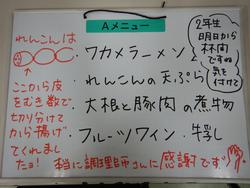 Aメニュー
れんこんは
ここから皮
をむき数で
切り分けて
から揚げ
てくれまし
たョ!
・ワカメラーメン
・れんこんの天ぷら
・大根と豚肉の煮物
・フルーツワイン・牛乳
2年生
明日から
林間
ですね
気を
付けて
本当に調理師さんに感謝です